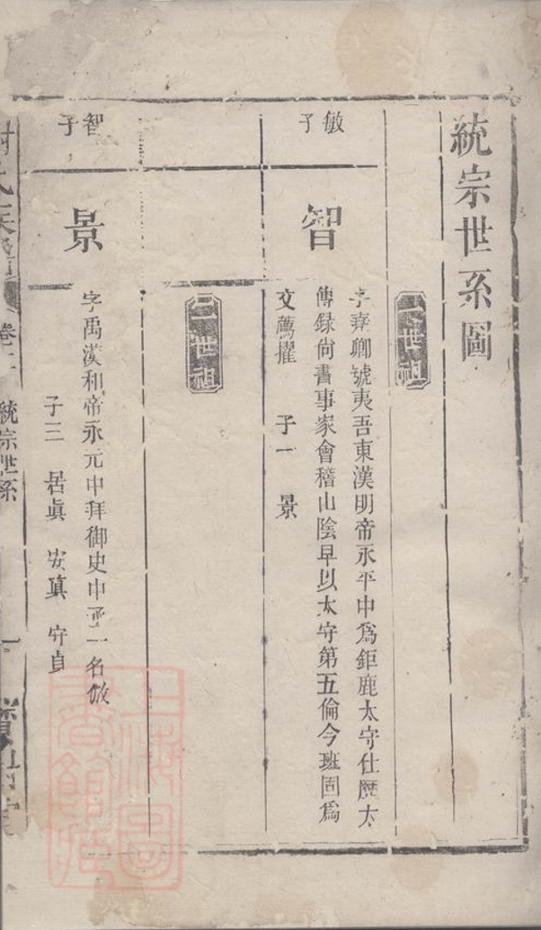 統宗世系圖
一世祖
敏子
智
字堯卿號夷吾東漢明帝永平中為鉅鹿太守仕歷太
傅錄尚書事家會稽山陰早以太守第五倫今班固為
文薦擢　子一　景
二世祖
智子
景
字禹漢和帝永元中拜御史中丞一名倣
子三　居眞　安眞　守貞
氏族譜
卷二
統宗世系
一
上海圖書館藏